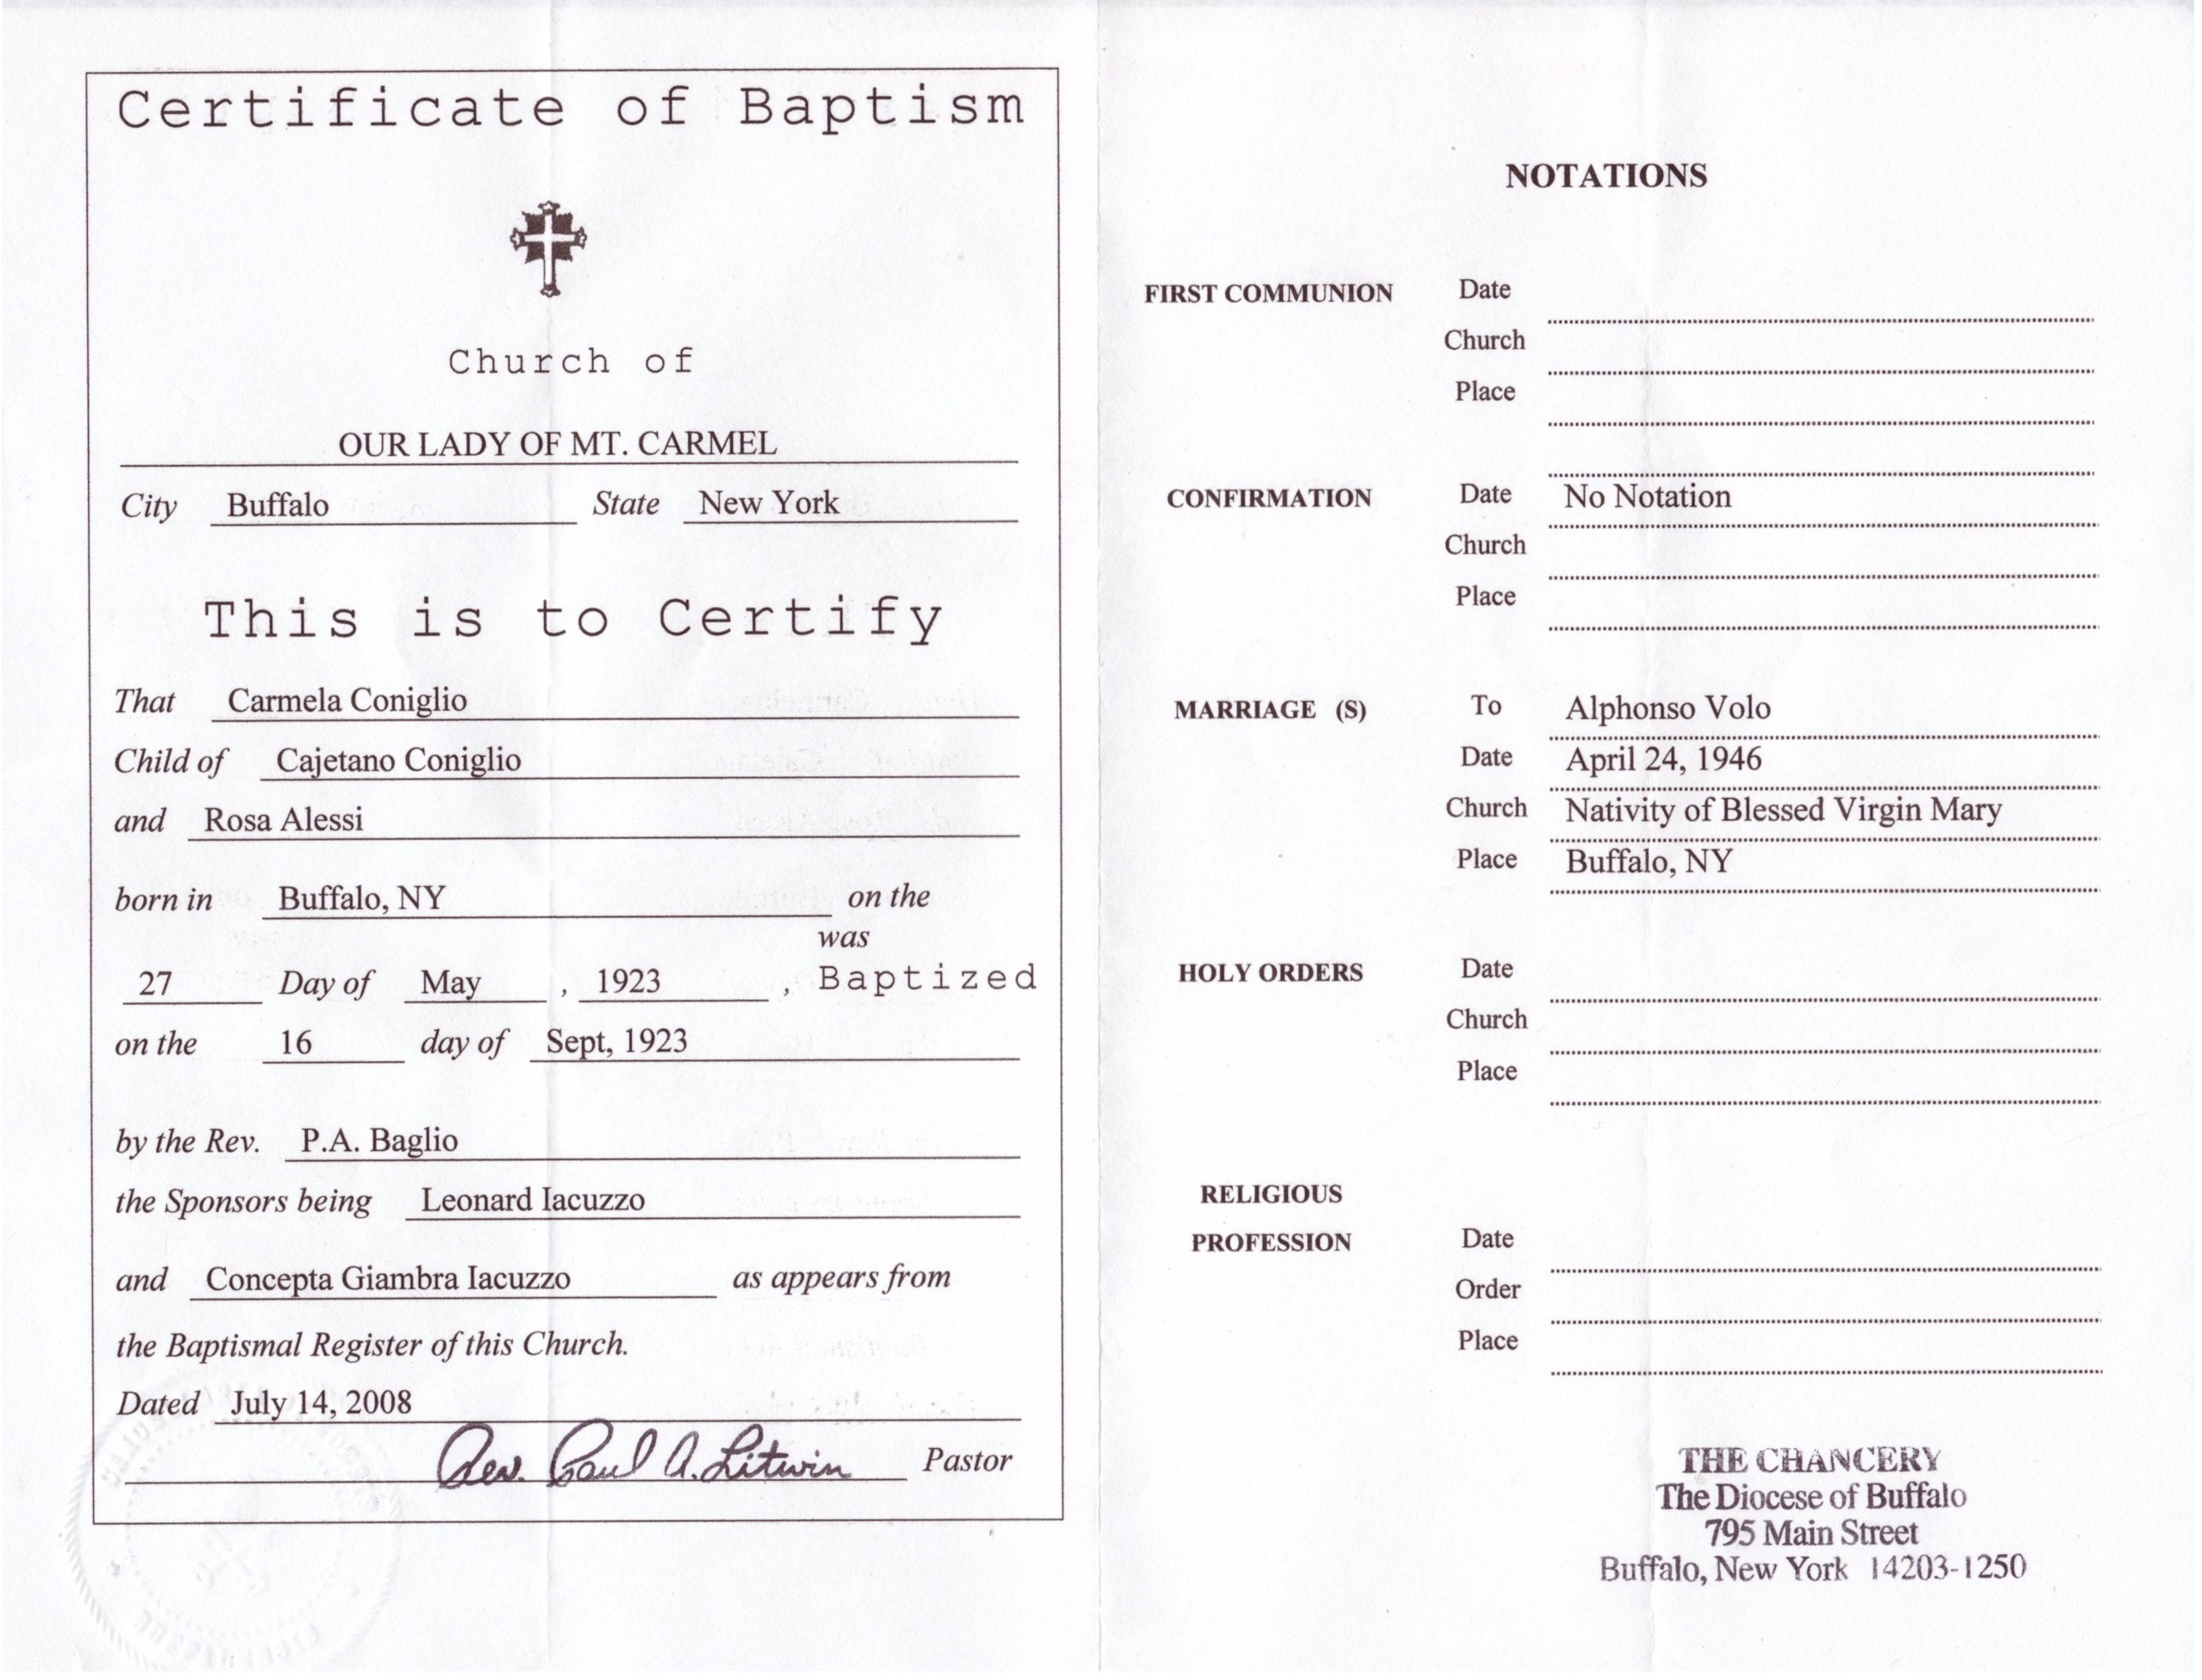 Certificate of Baptism
Church of
OUR LADY OF MT. CARMEL
City Buffalo State New York
This is to Certify
That Carmela Coniglio
Child of Cajetano Coniglio
and Rosa Alessi
born in Buffalo, NY on the
was
27 Day of May , 1923 , Baptized
on the 16 day of Sept, 1923
by the Rev. P.A. Baglio
the Sponsors being Leonard Iacuzzo
and Concepta Giambra Iacuzzo as appears from
the Baptismal Register of this Church.
Dated July 14, 2008
Rev. Paul A. Litwin Pastor
NOTATIONS
FIRST COMMUNION Date
Church
Place
CONFIRMATION Date No Notation
Church
Place
MARRIAGE (S) To Alphonso Volo
Date April 24, 1946
Church Nativity of Blessed Virgin Mary
Place Buffalo, NY
HOLY ORDERS Date
Church
Place
RELIGIOUS
PROFESSION Date
Order
Place
THE CHANCERY
The Diocese of Buffalo
795 Main Street
Buffalo, New York 14203-1250